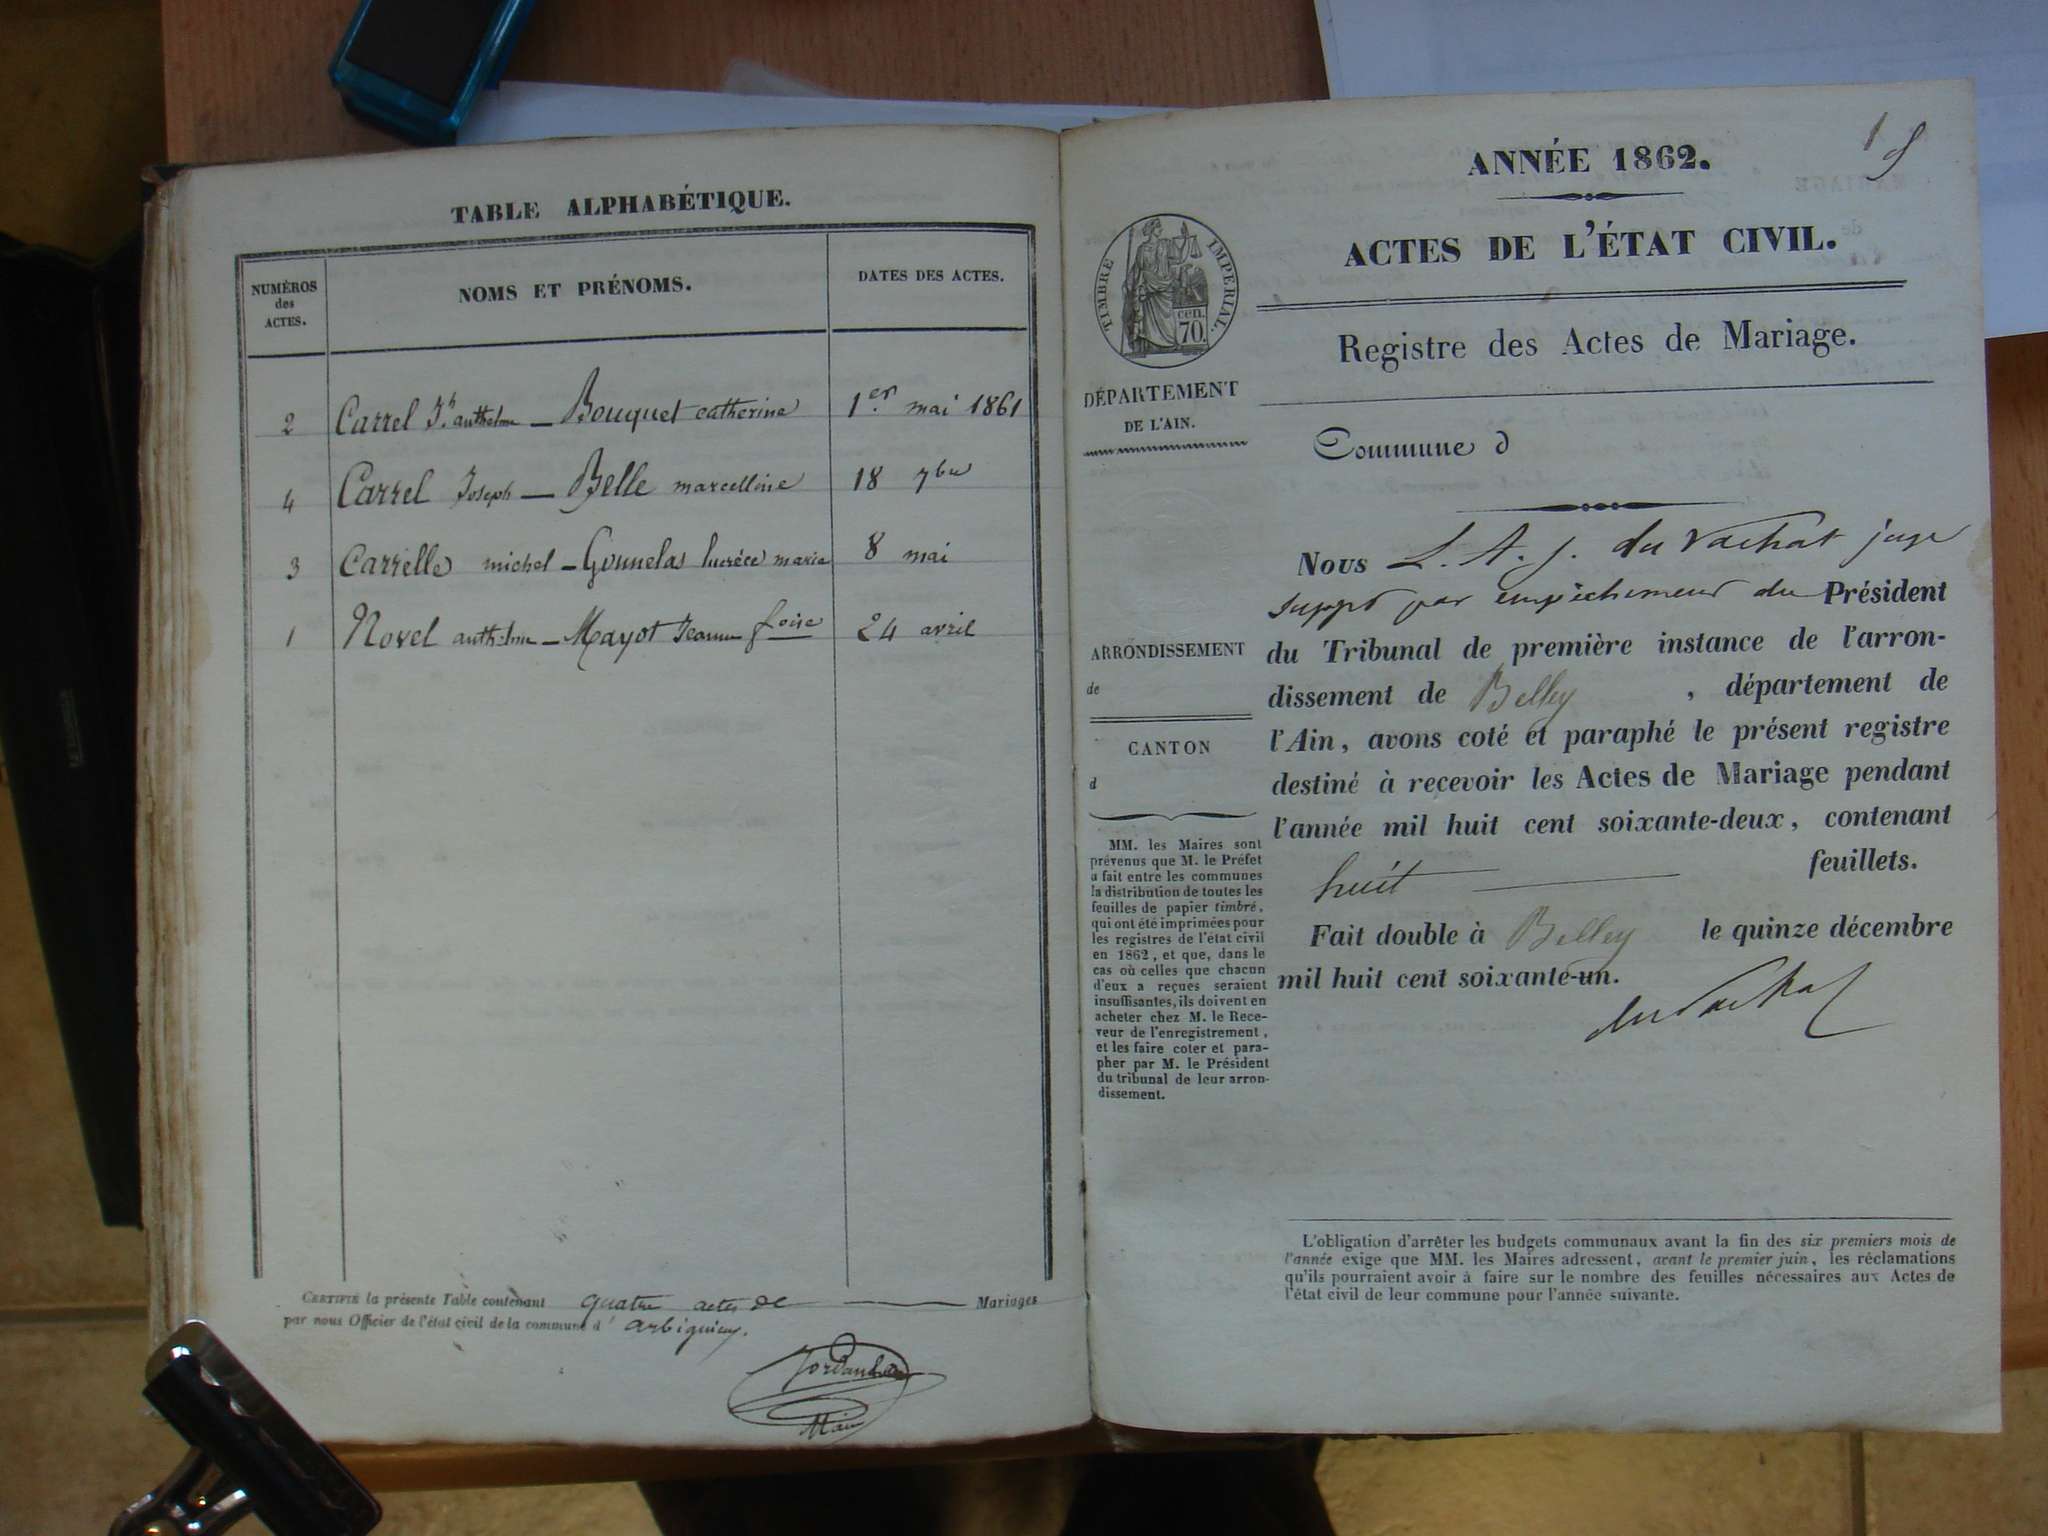 TABLE ALPHABÉTIQUE.
NUMÉROS
des
ACTES.
NOMS ET PRÉNOMS.
DATES DES ACTES.
2 Carrel Jh anthelme — Bouquet catherine 1er mai 1861
4 Carrel Joseph — Belle marcelline 18 7bre
3 Carrelle michel — Gonnelas lucréce marie 8 mai
1 Novel anthelme — Mayot Jeanne foise 24 avril
CERTIFIÉ la présente Table contenant quatre actes de Mariages
par nous Officier de l'état civil de la commune d'arbignieu.
Maire
1
ANNÉE 1862.
ACTES DE L'ÉTAT CIVIL.
TIMBRE IMPERIAL.
cen.
70.
Registre des Actes de Mariage.
DÉPARTEMENT
DE L'AIN.
Commune d
ARRONDISSEMENT
de
CANTON
d
MM. les Maires sont
prévenus que M. le Préfet
a fait entre les communes
la distribution de toutes les
feuilles de papier timbré,
qui ont été imprimées pour
les registres de l'état civil
en 1862, et que, dans le
cas où celles que chacun
d'eux a reçues seraient
insuffisantes, ils doivent en
acheter chez M. le Rece-
veur de l'enregistrement,
et les faire coter et para-
pher par M. le Président
du tribunal de leur arron-
dissement.
Nous L. A. J. du Vachat juge
suppt par empêchement du Président
du Tribunal de première instance de l'arron-
dissement de Belley , département de
l'Ain, avons coté et paraphé le présent registre
destiné à recevoir les Actes de Mariage pendant
l'année mil huit cent soixante-deux, contenant
huit feuillets.
Fait double à Belley le quinze décembre
mil huit cent soixante-un.
du Vachat
L'obligation d'arrêter les budgets communaux avant la fin des six premiers mois de
l'année exige que MM. les Maires adressent, avant le premier juin, les réclamations
qu'ils pourraient avoir à faire sur le nombre des feuilles nécessaires aux Actes de
l'état civil de leur commune pour l'année suivante.